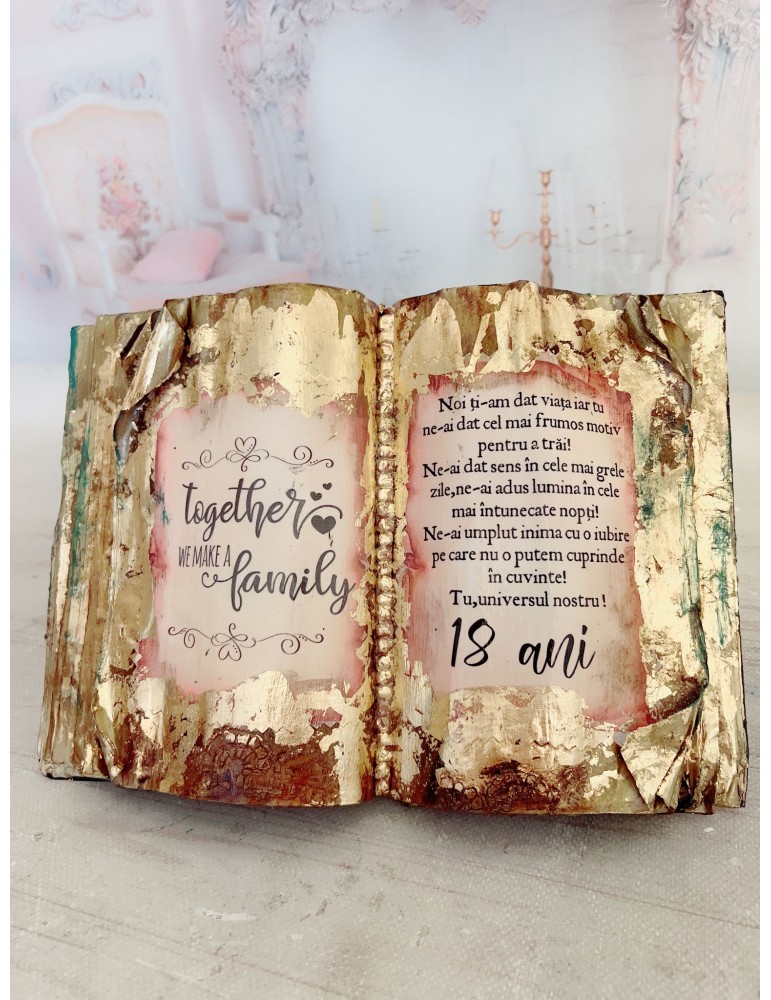 together
WE MAKE A
family
Noi ți-am dat viața iar tu
ne-ai dat cel mai frumos motiv
pentru a trăi!
Ne-ai dat sens în cele mai grele
zile,ne-ai adus lumina în cele
mai întunecate nopți!
Ne-ai umplut inima cu o iubire
pe care nu o putem cuprinde
în cuvinte!
Tu,universul nostru!
18 ani